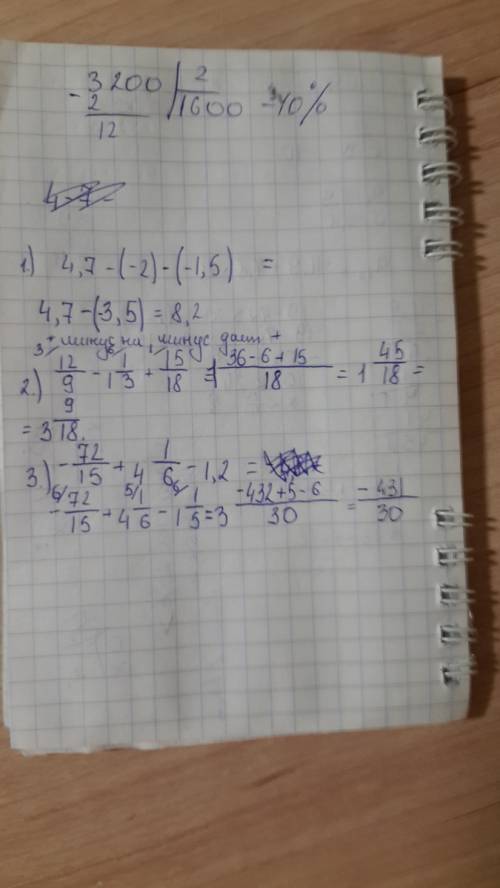 - 3200 | 2
2 1600 - 40%
12
1.) 4,7 - (-2) - (-1,5) =
4,7 - (-3,5) = 8,2
минус на минус дает +
2.) 12/9 - 1 1/3 + 15/18 = 1 36 - 6 + 15/18 = 1 45/18 =
= 3 9/18.
3.) - 72/15 + 4 1/6 - 1,2 =
- 72/15 + 4 1/6 - 1 1/5 = 3 -432 + 5 - 6/30 = -431/30